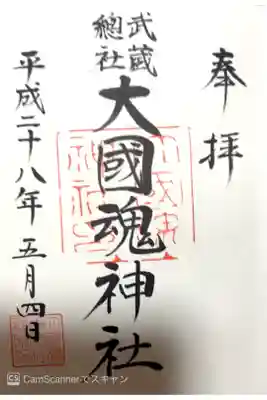 奉拝
武蔵
總社
大國魂神社
平成二十八年五月四日
CS CamScannerでスキャン